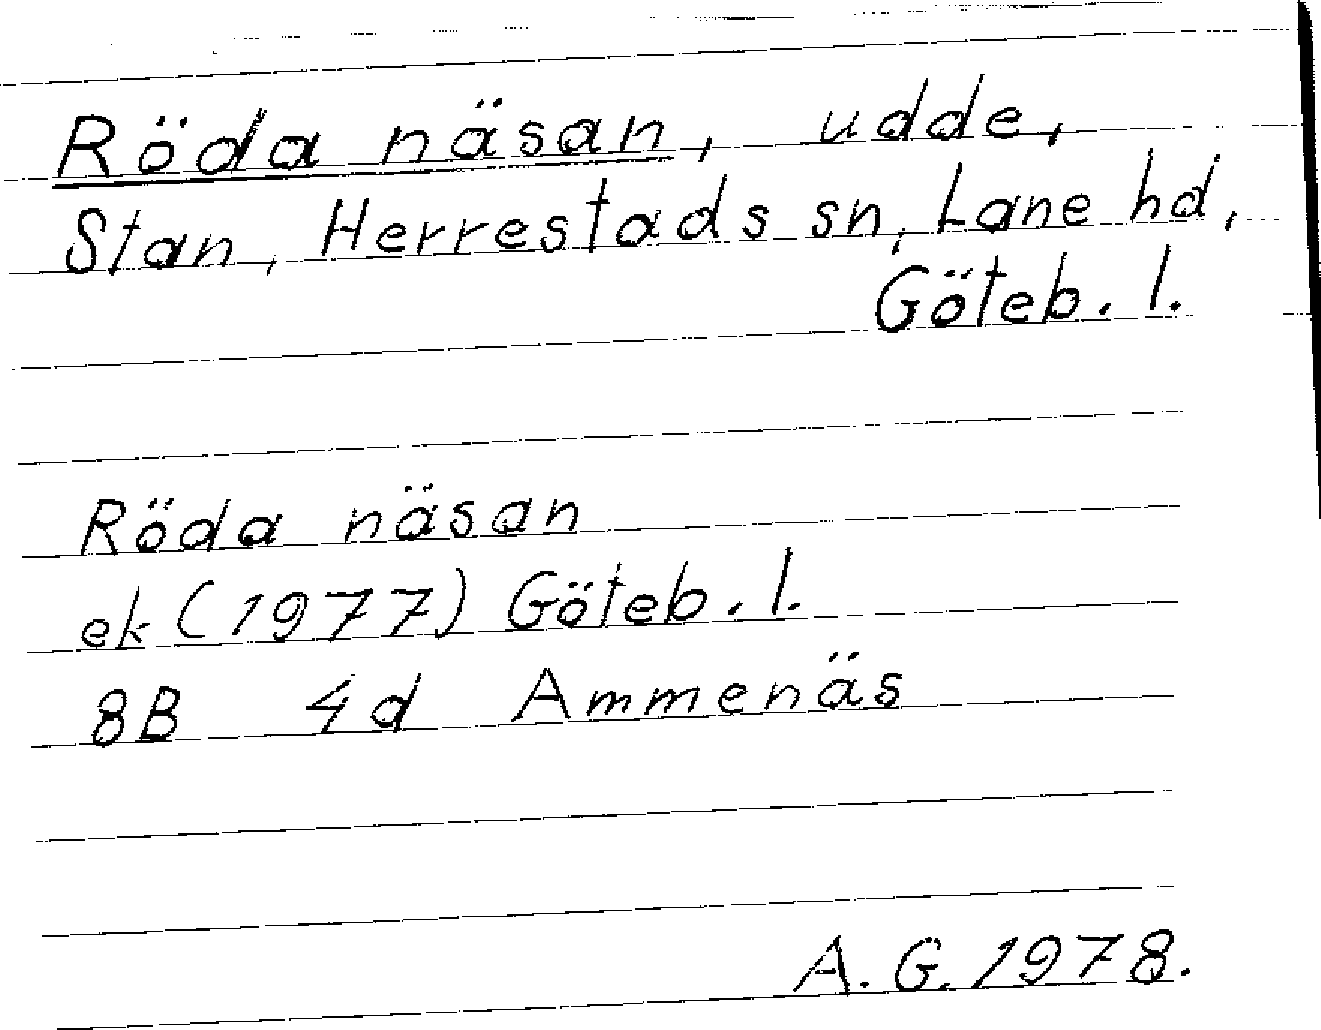 Röda näsan, udde,
Stan, Herrestads sn, Lane hd,
Göteb. l.
Röda näsan
ek (1977) Göteb. l.
8B 4d Ammenäs
A. G. 1978.